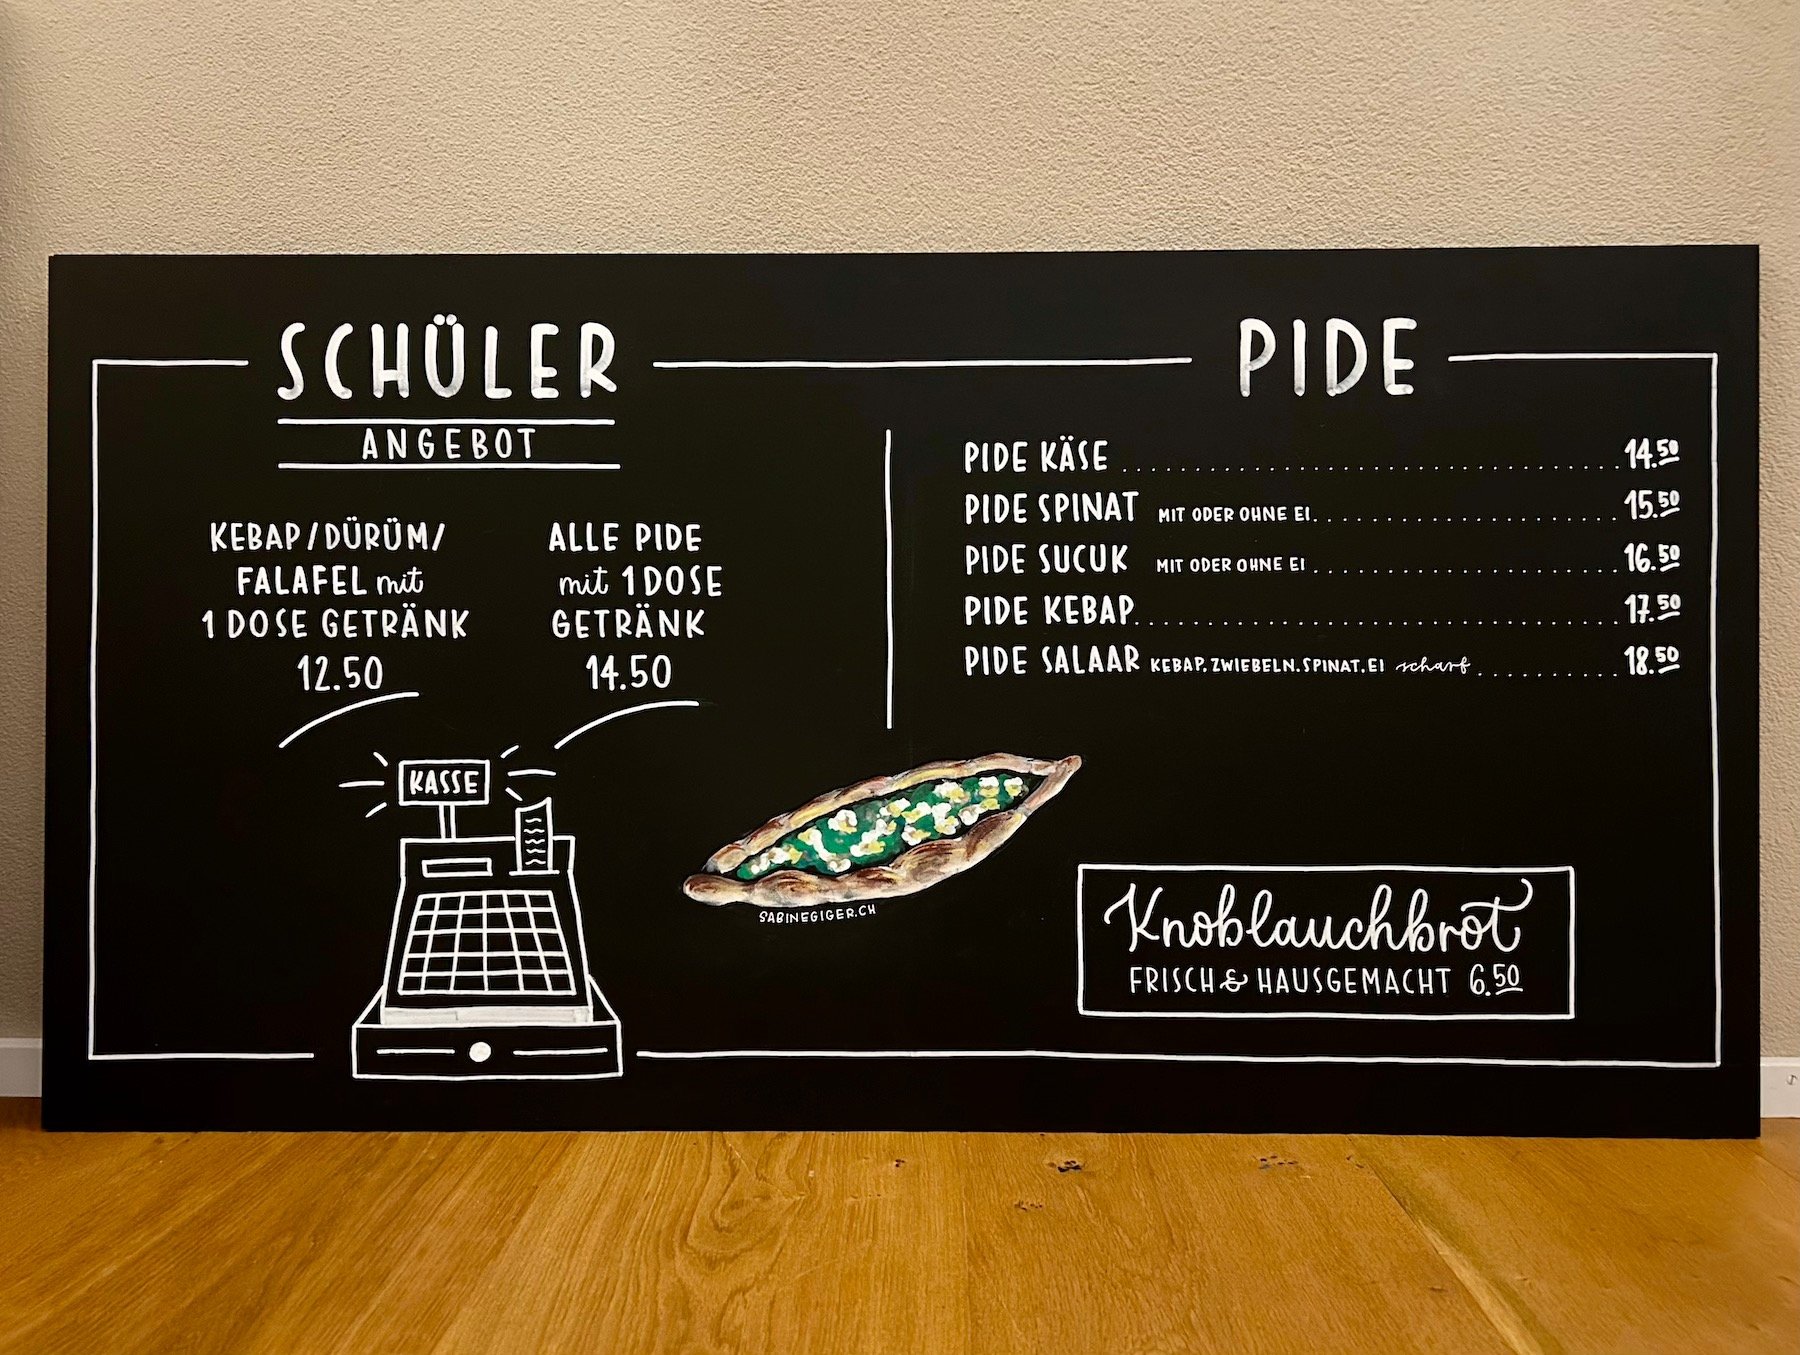 SCHÜLER
ANGEBOT
KEBAP/DÜRÜM/
FALAFEL mit
1 DOSE GETRÄNK
12.50
ALLE PIDE
mit 1 DOSE
GETRÄNK
14.50
KASSE
PIDE
PIDE KÄSE 14.50
PIDE SPINAT MIT ODER OHNE EI 15.50
PIDE SUCUK MIT ODER OHNE EI 16.50
PIDE KEBAP 17.50
PIDE SALAAR KEBAP.ZWIEBELN.SPINAT.EI scharf 18.50
SABINEGIGER.CH
Knoblauchbrot
FRISCH & HAUSGEMACHT 6.50